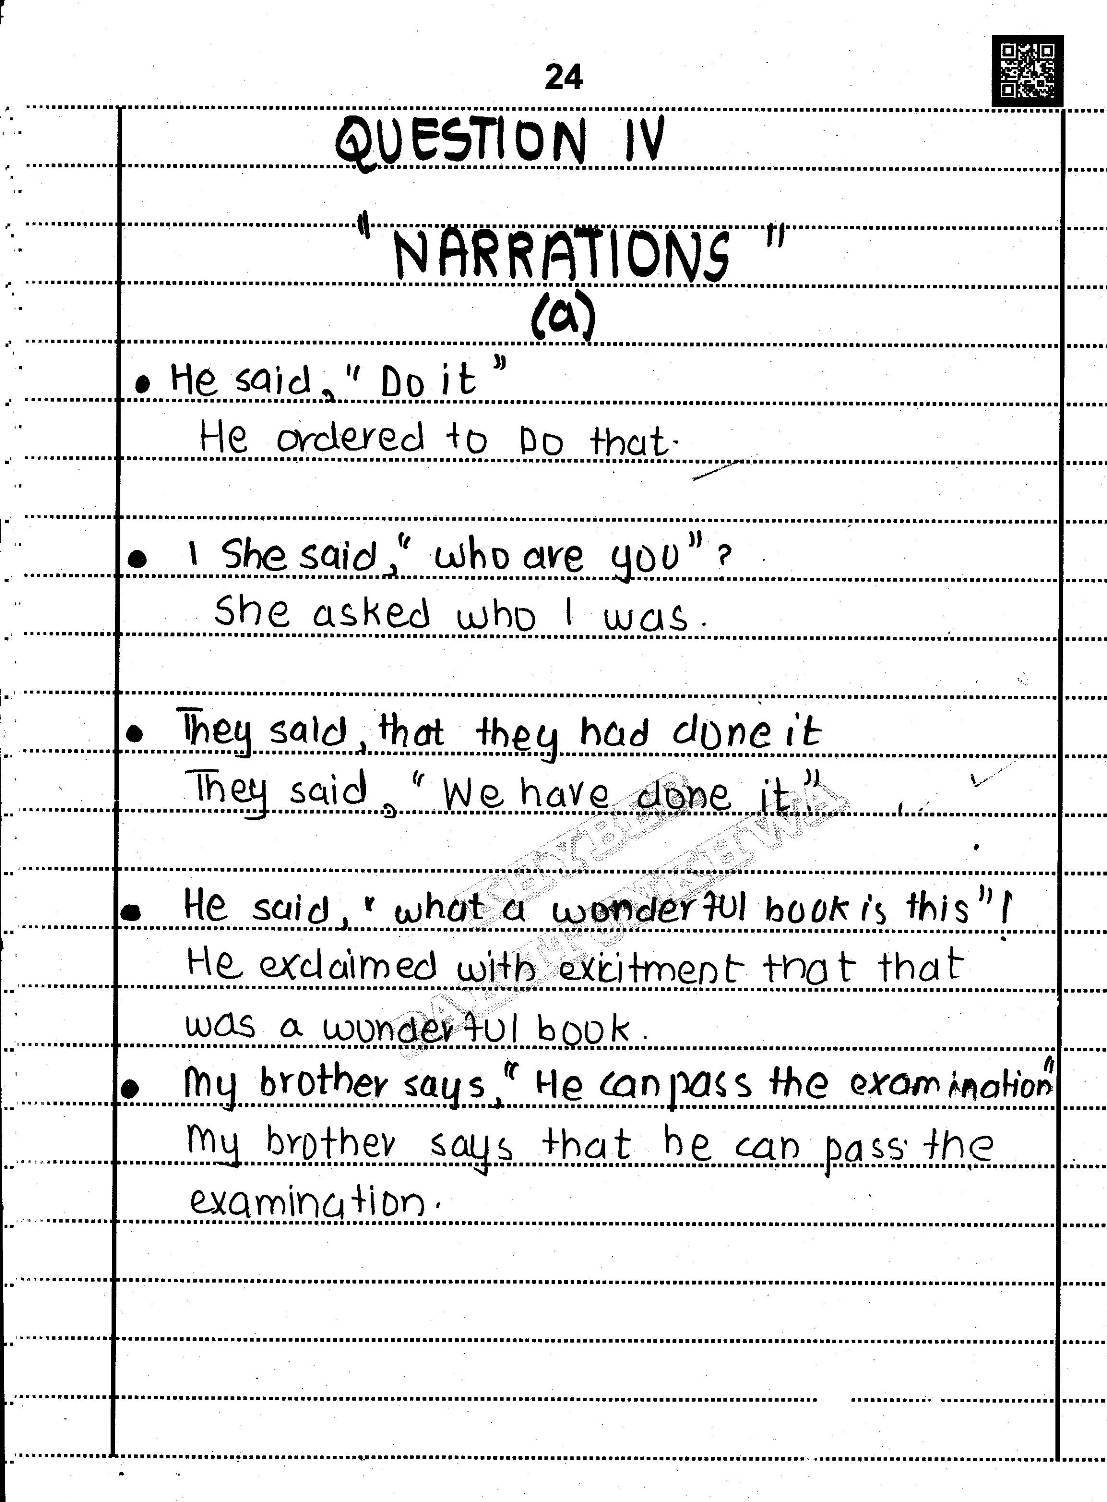 24
QUESTION IV
"NARRATIONS"
(a)
• He said, "Do it"
He ordered to Do that.
• I She said, "who are you"?
She asked who I was.
• They said, that they had done it
They said, "We have done it."
KHYBER
PAKHTUNKHWA
• He said, "what a wonderful book is this"!
He exclaimed with exicitment that that
was a wonderful book.
• My brother says, "He can pass the examination"
My brother says that he can pass the
examination.